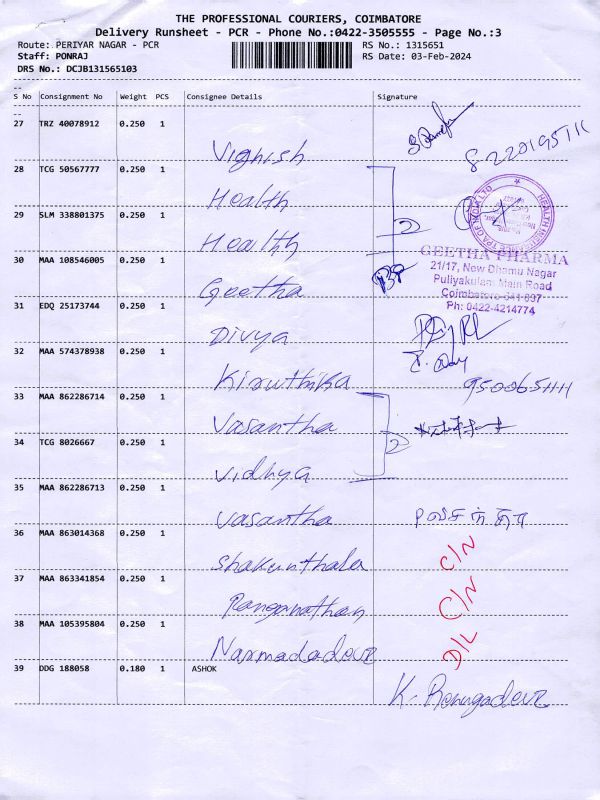 THE PROFESSIONAL COURIERS, COIMBATORE
Delivery Runsheet - PCR - Phone No.:0422-3505555 - Page No.:3
Route: PERIYAR NAGAR - PCR RS No.: 1315651
Staff: PONRAJ RS Date: 03-Feb-2024
DRS No.: DCJB131565103
S No Consignment No Weight PCS Consignee Details Signature
27 TRZ 40078912 0.250 1
Vighish 8220195111
28 TCG 50567777 0.250 1
Health
29 SLM 338801375 0.250 1
Health 2
30 MAA 108546005 0.250 1
GEETHA PHARMA
21/17, New Dhamu Nagar
Puliyakulam Main Road
Coimbatore-641 037
Ph: 0422-4214774
Geetha
31 EDQ 25173744 0.250 1
Divya
32 MAA 574378938 0.250 1
Kiruthika 9500651111
33 MAA 862286714 0.250 1
Vasantha
34 TCG 8026667 0.250 1 2
Vidhya
35 MAA 862286713 0.250 1
Vasantha
36 MAA 863014368 0.250 1
Shakunthala C/N
37 MAA 863341854 0.250 1
Ranganathan C/N
38 MAA 105395804 0.250 1
Narmadadevi D/L
39 DDG 188058 0.180 1 ASHOK
K. Renugadevi